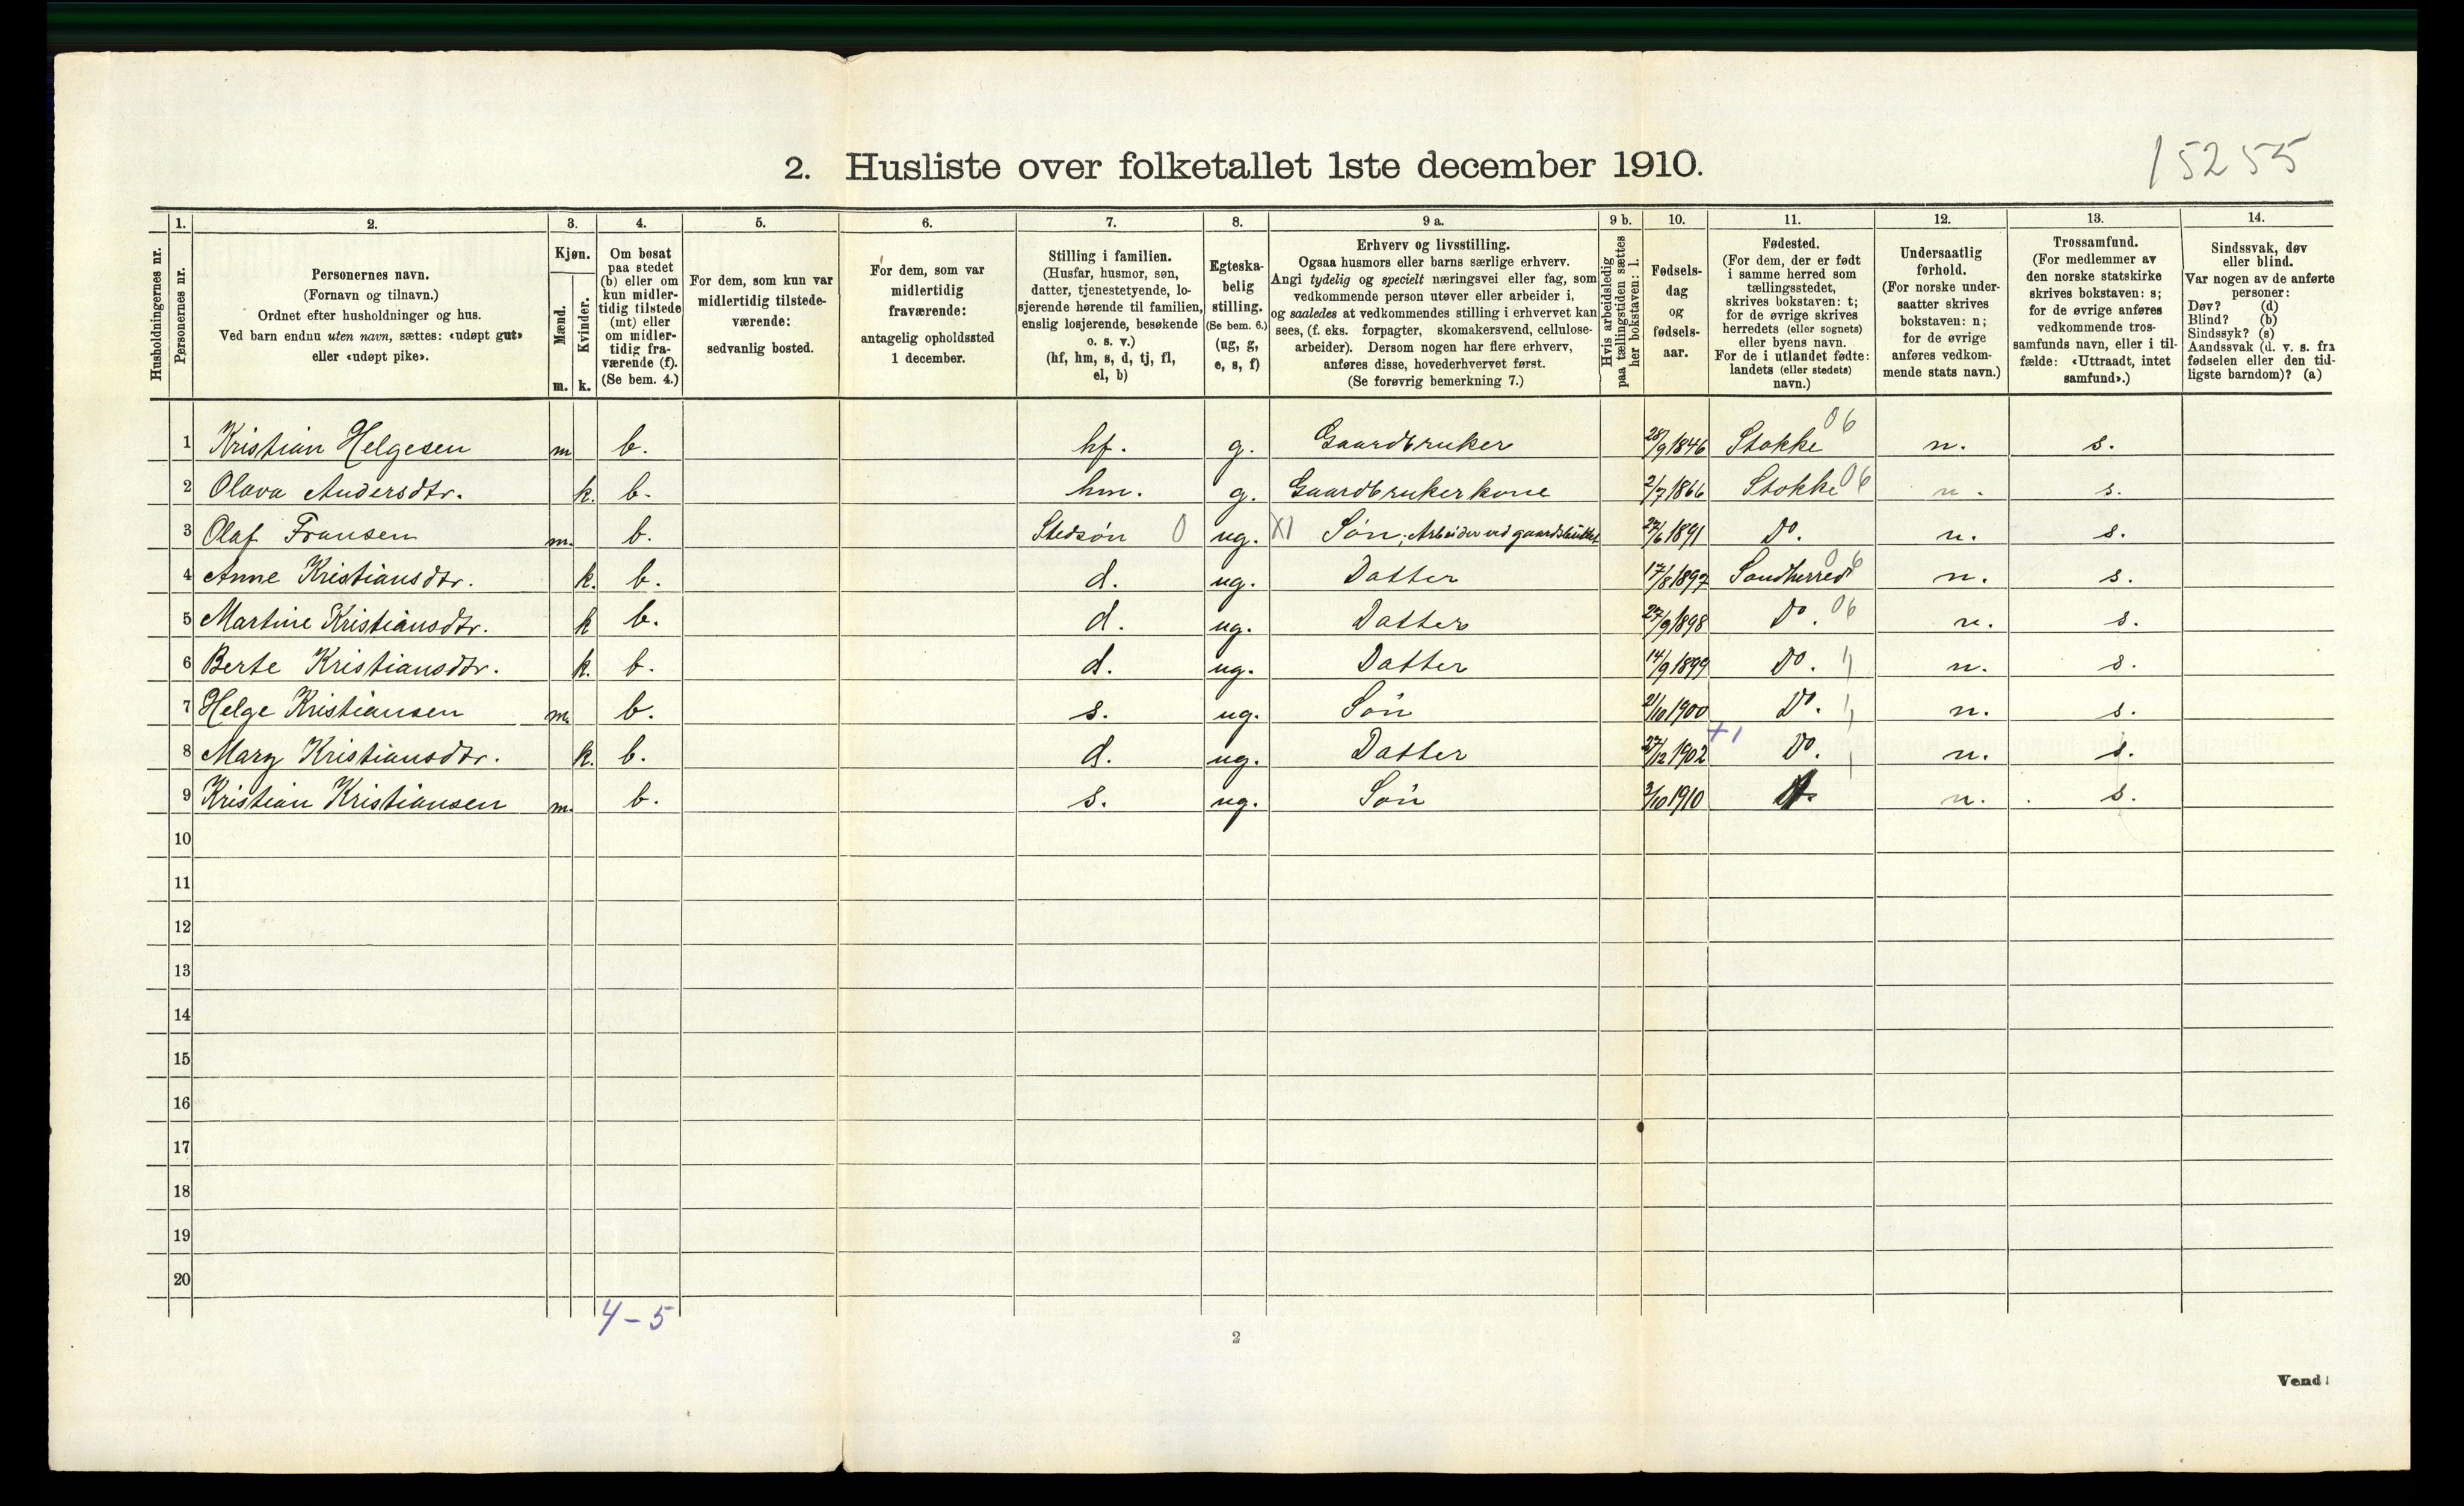 2. Husliste over folketallet 1ste december 1910.
15255
Husholdningernes nr.
1.
Personernes nr.
2.
Personernes navn.
(Fornavn og tilnavn.)
Ordnet efter husholdninger og hus.
Ved barn endnu uten navn, sættes: «udøpt gut»
eller «udøpt pike».
3.
Kjøn.
Mænd.
Kvinder.
m. k.
4.
Om bosat
paa stedet
(b) eller om
kun midler-
tidig tilstede
(mt) eller
om midler-
tidig fra-
værende (f).
(Se bem. 4.)
5.
For dem, som kun var
midlertidig tilstede-
værende:
sedvanlig bosted.
6.
For dem, som var
midlertidig
fraværende:
antagelig opholdssted
1 december.
7.
Stilling i familien.
(Husfar, husmor, søn,
datter, tjenestetyende, lo-
sjerende hørende til familien,
enslig losjerende, besøkende
o. s. v.)
(hf, hm, s, d, tj, fl,
el, b)
8.
Egteska-
belig
stilling.
(Se bem. 6.)
(ug, g,
e, s, f)
9 a.
Erhverv og livsstilling.
Ogsaa husmors eller barns særlige erhverv.
Angi tydelig og specielt næringsvei eller fag, som
vedkommende person utøver eller arbeider i,
og saaledes at vedkommendes stilling i erhvervet kan
sees, (f. eks. forpagter, skomakersvend, cellulose-
arbeider). Dersom nogen har flere erhverv,
anføres disse, hovederhvervet først.
(Se forøvrig bemerkning 7.)
9 b.
Hvis arbeidsledig
paa tællingstiden sættes
her bokstaven: l.
10.
Fødsels-
dag
og
fødsels-
aar.
11.
Fødested.
(For dem, der er født
i samme herred som
tællingsstedet,
skrives bokstaven: t;
for de øvrige skrives
herredets (eller sognets)
eller byens navn.
For de i utlandet fødte:
landets (eller stedets)
navn.)
12.
Undersaatlig
forhold.
(For norske under-
saatter skrives
bokstaven: n;
for de øvrige
anføres vedkom-
mende stats navn.)
13.
Trossamfund.
(For medlemmer av
den norske statskirke
skrives bokstaven: s;
for de øvrige anføres
vedkommende tros-
samfunds navn, eller i til-
fælde: «Uttraadt, intet
samfund».)
14.
Sindssvak, døv
eller blind.
Var nogen av de anførte
personer:
Døv? (d)
Blind? (b)
Sindssyk? (s)
Aandssvak (d. v. s. fra
fødselen eller den tid-
ligste barndom)? (a)
1 Kristian Helgesen m b. hf. g. Gaardbruker 28/9 1846 Stokke 06 n. s.
2 Olava Andersdtr. k. b. hm. g. Gaardbrukerkone 2/7 1866 Stokke 06 n. s.
3 Olaf Fransen m. b. Stedsøn 0 ug. X1 Søn; Arbeider ved gaardsbruket 27/6 1891 Do. n. s.
4 Anne Kristiansdtr. k. b. d. ug. Datter 17/8 1897 Sandherred 06 n. s.
5 Martine Kristiansdtr. k b. d. ug. Datter 27/9 1898 Do. 06 n. s.
6 Berte Kristiansdtr. k. b. d. ug. Datter 14/9 1899 Do. n. s.
7 Helge Kristiansen m. b. s. ug. Søn 2/10 1900 Do. n. s.
8 Mary Kristiansdtr. k. b. d. ug. Datter 27/12 1902 +1 Do. n. s.
9 Kristian Kristiansen m. b. s. ug. Søn 2/10 1910 n. s.
10
11
12
13
14
15
16
17
18
19
20
4-5
2
Vend!